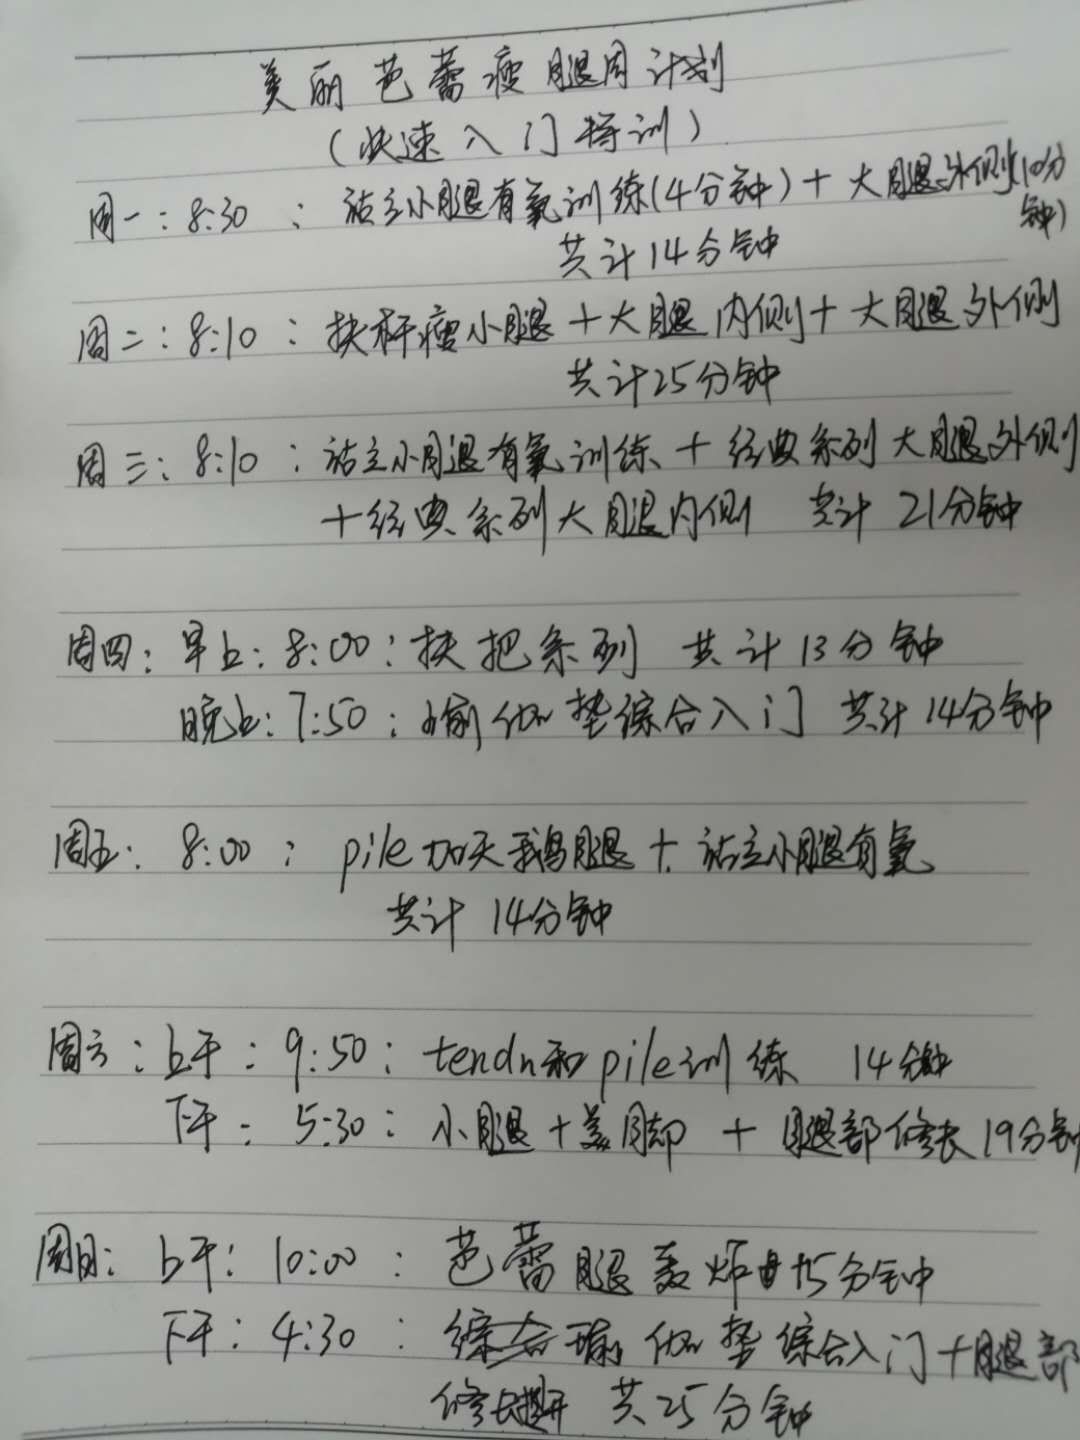 美丽芭蕾瘦腿周计划
(快速入门特训)
周一:8:30 : 站立小腿有氧训练(4分钟)+大腿外侧(10分
钟)
共计14分钟
周二:8:10 : 扶杆瘦小腿+大腿内侧+大腿外侧
共计25分钟
周三:8:10 : 站立小腿有氧训练+经典系列大腿外侧
+经典系列大腿内侧 共计 21分钟
周四:早上:8:00:扶把系列 共计13分钟
晚上:7:50:瑜伽垫综合入门 共计14分钟
周五: 8:00 : pile加天鹅腿+站立小腿有氧
共计 14分钟
周六:上午:9:50:tendn和pile训练 14分钟
下午: 5:30:小腿+美脚 + 腿部修长19分钟
周日:上午:10:00 : 芭蕾腿轰炸15分钟
下午:4:30 : 瑜伽垫综合入门+腿部
修长 共25分钟